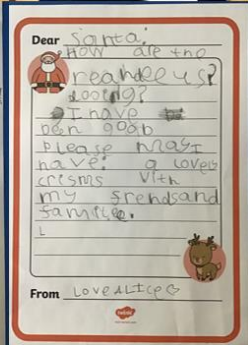 Dear santa.
How are the
reandeeus
dooing?
I have
ben goob
please may I
have. a lovely
crisms with
my frendsand
familee.
L
From Love Alice
twinkl